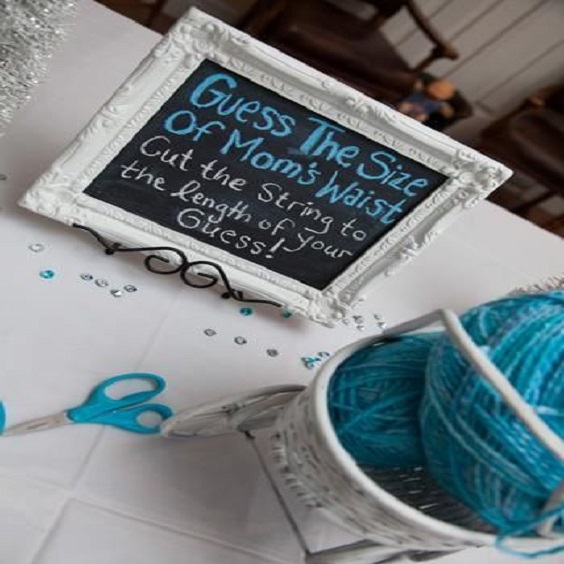 Guess The Size
Of Mom's Waist
Cut the String to
the length of your
Guess!